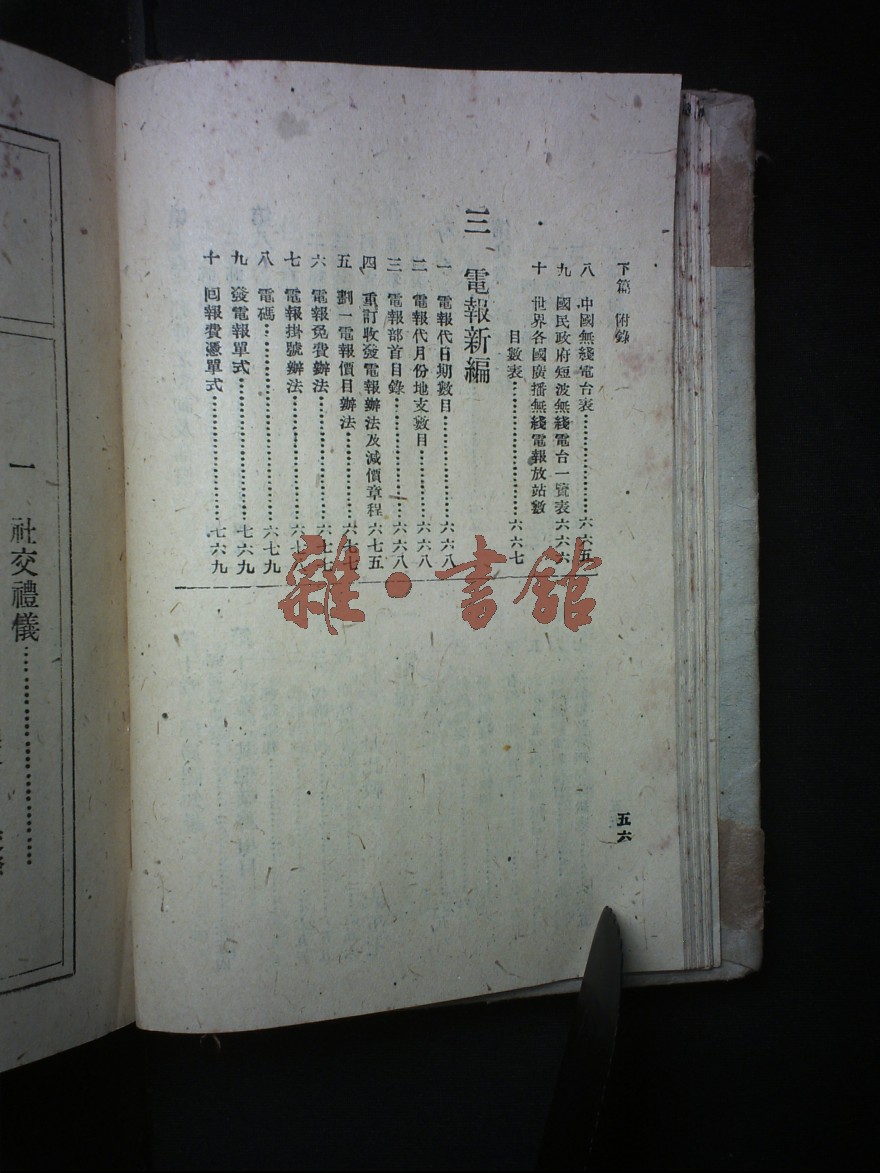 下篇 附錄
八 中國無綫電台表……六六五
九 國民政府短波無綫電台一覽表六六六
十 世界各國廣播無綫電報放站數
目數表……六六七
三 電報新編
一 電報代日期數目……六六八
二 電報代月份地支數目……六六八
三 電報部首目錄……六六八
四 重訂收發電報辦法及減價章程六七五
五 劃一電報價目辦法……六七七
六 電報免費辦法……六七七
七 電報掛號辦法……六七八
八 電碼……六七九
九 發電報單式……七六九
十 回報費憑單式……七六九
五六
一 社交禮儀……
雜·書館